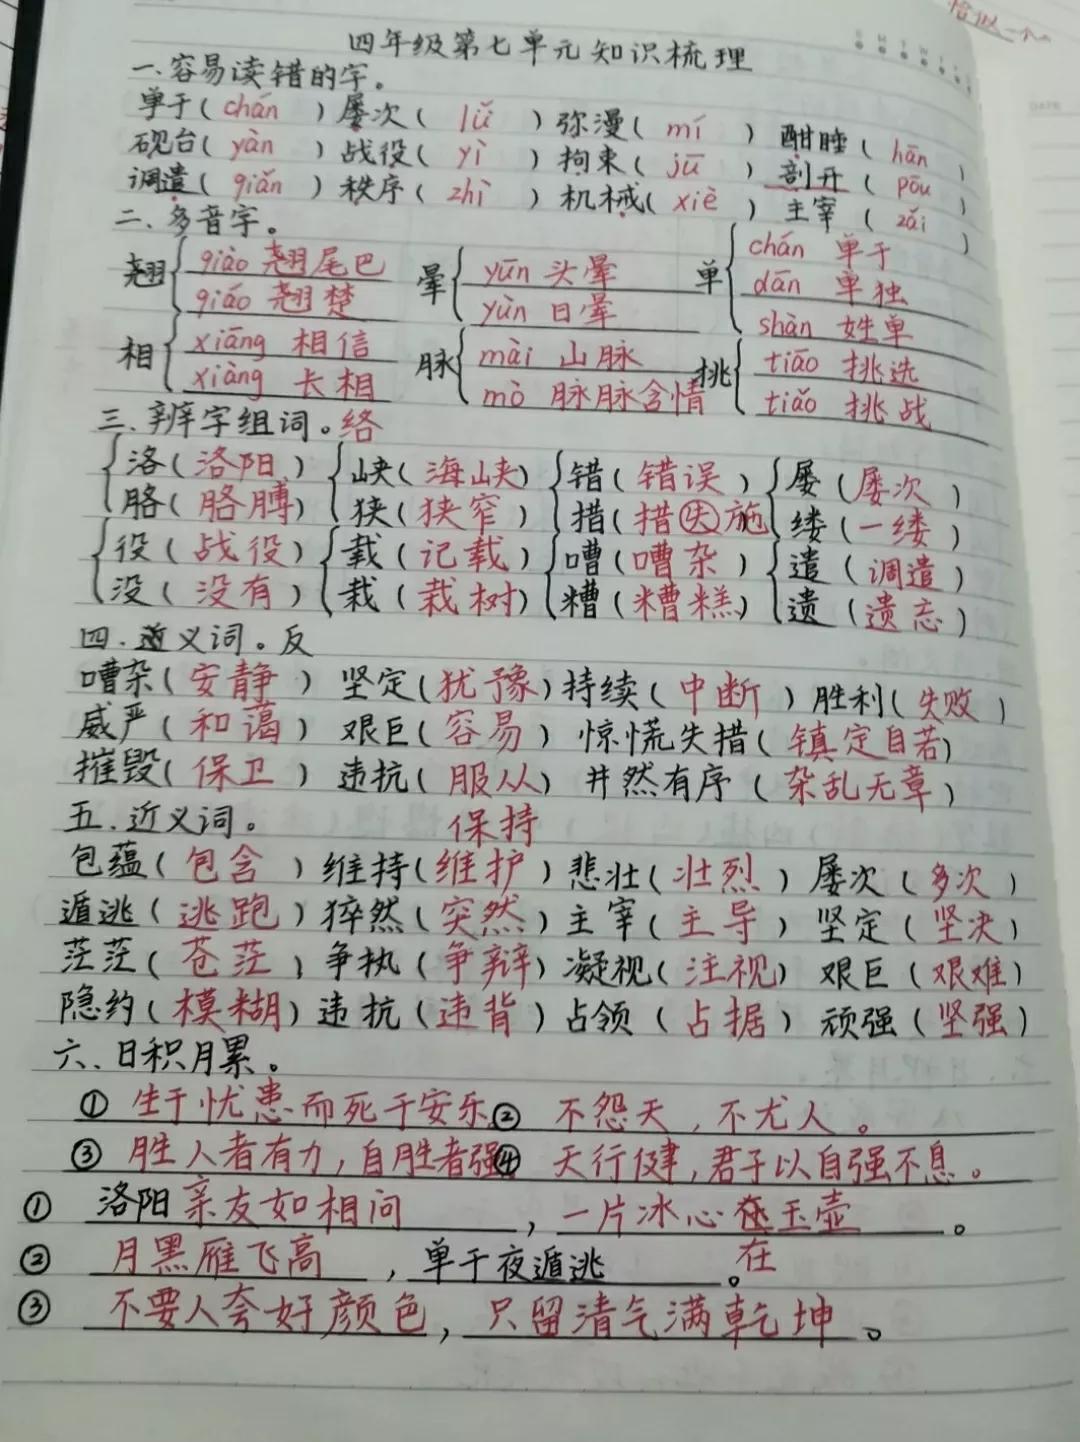 恰似一个
四年级第七单元知识梳理
一.容易读错的字。
单于(chán)屡次(lǚ)弥漫(mí)酣睡(hān)
砚台(yàn)战役(yì)拘束(jū)剖开(pōu)
调遣(qiǎn)秩序(zhì)机械(xiè)主宰(zǎi)
二.多音字。
翘{qiào 翘尾巴 晕{yūn 头晕 单{chán 单于
qiáo 翘楚 yùn 日晕 dān 单独
shàn 姓单
相{xiāng 相信 脉{mài 山脉 挑{tiāo 挑选
xiàng 长相 mò 脉脉含情 tiǎo 挑战
三.辨字组词。络
{洛(洛阳){峡(海峡){错(错误){屡(屡次)
胳(胳膊) 狭(狭窄) 措(措施) 缕(一缕)
{役(战役){载(记载){嘈(嘈杂){遣(调遣)
没(没有) 栽(栽树) 糟(糟糕) 遗(遗忘)
四.近义词。反
嘈杂(安静) 坚定(犹豫) 持续(中断) 胜利(失败)
威严(和蔼) 艰巨(容易) 惊慌失措(镇定自若)
摧毁(保卫) 违抗(服从) 井然有序(杂乱无章)
五.近义词。 保持
包蕴(包含) 维持(维护) 悲壮(壮烈) 屡次(多次)
遁逃(逃跑) 猝然(突然) 主宰(主导) 坚定(坚决)
茫茫(苍茫) 争执(争辩) 凝视(注视) 艰巨(艰难)
隐约(模糊) 违抗(违背) 占领(占据) 顽强(坚强)
六、日积月累。
① 生于忧患而死于安乐 ② 不怨天,不尤人。
③ 胜人者有力,自胜者强 ④ 天行健,君子以自强不息。
① 洛阳亲友如相问,一片冰心在玉壶。
② 月黑雁飞高,单于夜遁逃。在
③ 不要人夸好颜色,只留清气满乾坤。